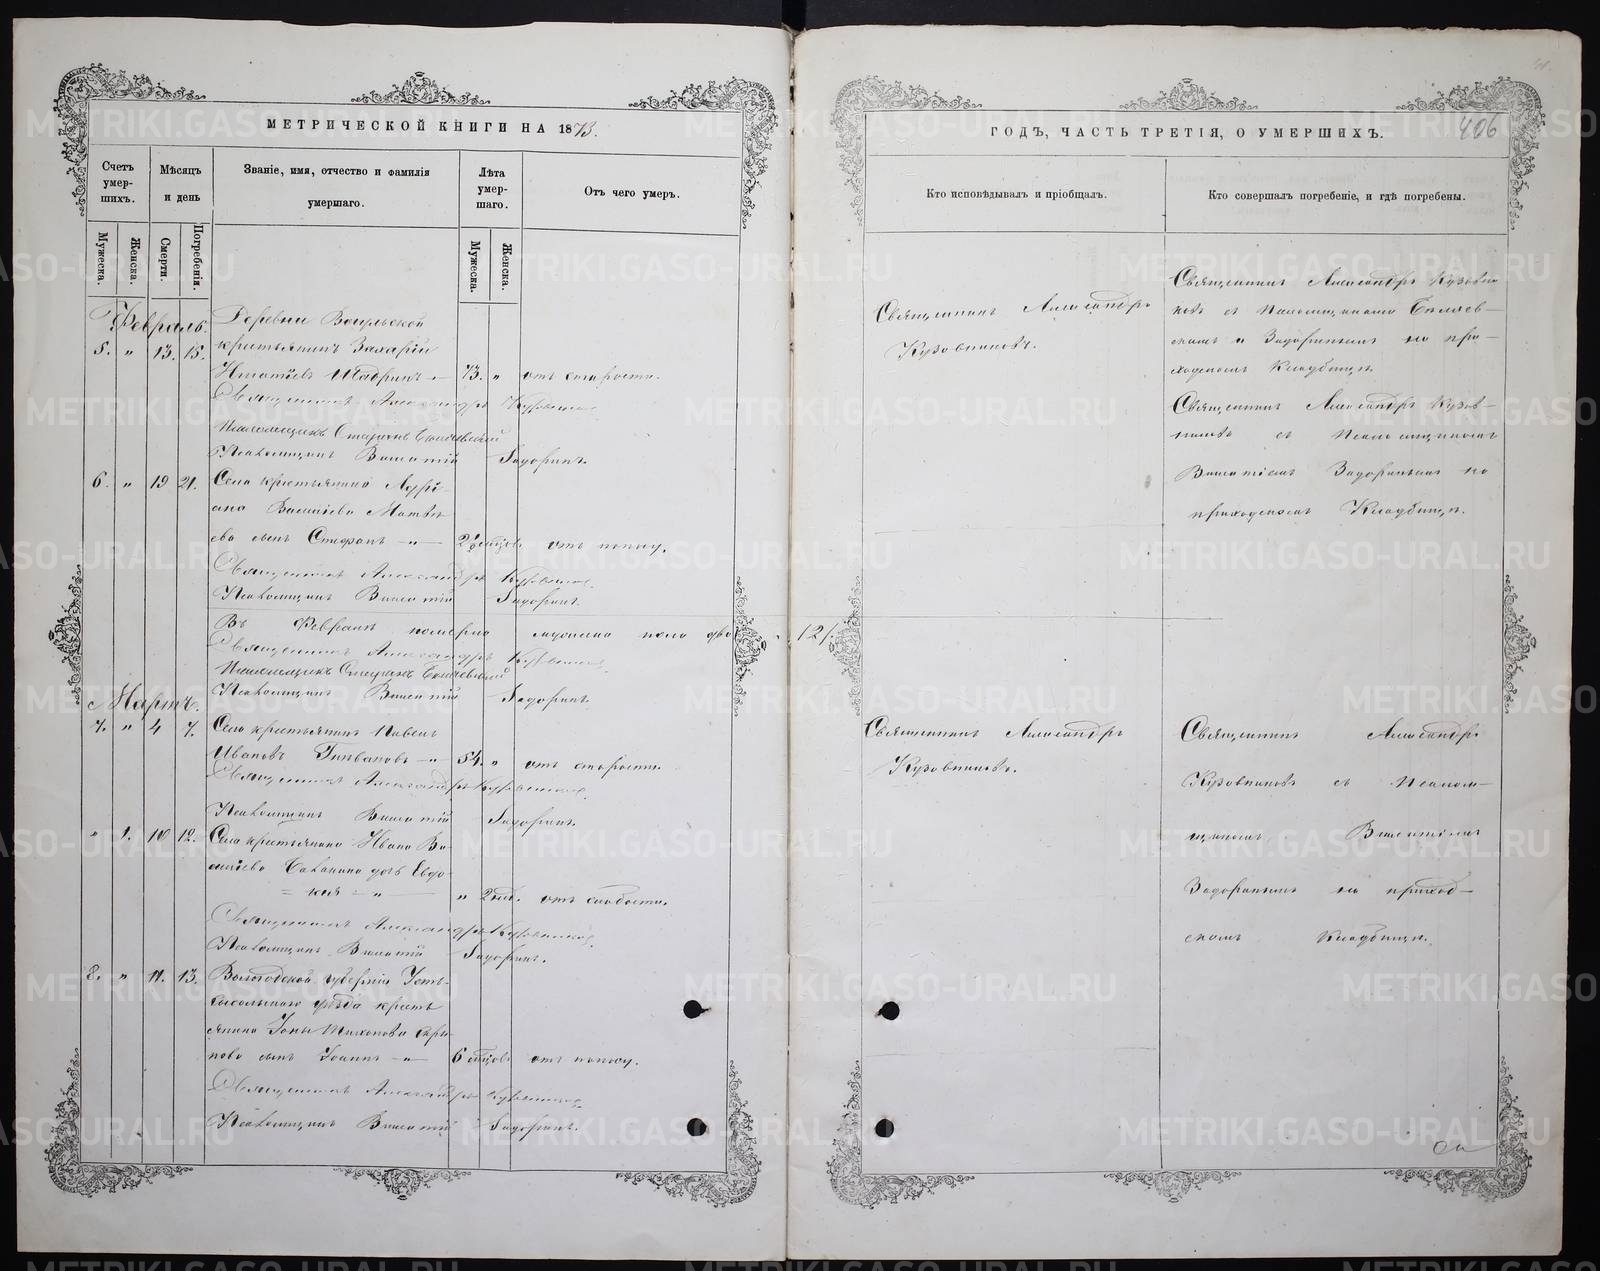 МЕТРИЧЕСКОЙ КНИГИ НА 1873.
Счетъ умер-шихъ.
Мѣсяцъ и день
Званіе, имя, отчество и фамилія умершаго.
Лѣта умер-шаго.
Отъ чего умеръ.
Мужеска.
Женска.
Смерти.
Погребенія.
Мужеска.
Женска.
Февраль.
Деревни
5. „ 13. 15. крестьянинъ Захарій
Игнатіевъ Шадринъ — 73. „ отъ старости.
Священникъ Александръ Кузовниковъ
Псаломщикъ Стефанъ
Псаломщикъ Викентій Задоринъ.
6. „ 19 21. Села крестьянина
Василіева Матвѣ-
ева сынъ Стефанъ — „ — отъ поносу.
Священникъ Александръ Кузовниковъ
Псаломщикъ Викентій Задоринъ.
Въ Февралѣ померло мужеска пола два „ 2/.
Священникъ Александръ Кузовниковъ
Псаломщикъ Стефанъ
Псаломщикъ Викентій Задоринъ.
Мартъ.
7. „ 4 7. Села крестьянинъ Павелъ
Ивановъ — „ 54. „ отъ старости.
Священникъ Александръ Кузовниковъ
Псаломщикъ Викентій Задоринъ.
„ 1. 10 12. Села крестьянина Ивана Ва-
силіева дочь Евдо-
= кія — „ — „ отъ слабости.
Священникъ Александръ Кузовниковъ
Псаломщикъ Викентій Задоринъ.
8. „ 11. 13. Вологодской губерніи Усть-
сысольскаго уѣзда кресть
янина Іоны
сынъ Іоаннъ — „ — 6 мѣсяцовъ отъ поносу.
Священникъ Александръ Кузовниковъ
Псаломщикъ Викентій Задоринъ.
ГОДЪ, ЧАСТЬ ТРЕТІЯ, О УМЕРШИХЪ.
406
Кто исповѣдывалъ и пріобщалъ.
Кто совершалъ погребеніе, и гдѣ погребены.
Священникъ Александръ
Кузовниковъ.
Священникъ Александръ Кузовни
ковъ съ Псаломщиками
скимъ и Задоринымъ на при-
ходскомъ Кладбищѣ.
Священникъ Александръ Кузов-
никовъ съ Псаломщикомъ
Викентіемъ Задоринымъ на
приходскомъ Кладбищѣ.
Священникъ Александръ
Кузовниковъ.
Священникъ Александръ
Кузовниковъ съ Псалом-
щикомъ Викентіемъ
Задоринымъ на приход-
скомъ Кладбищѣ.
METRIKI.GASO-URAL.RU